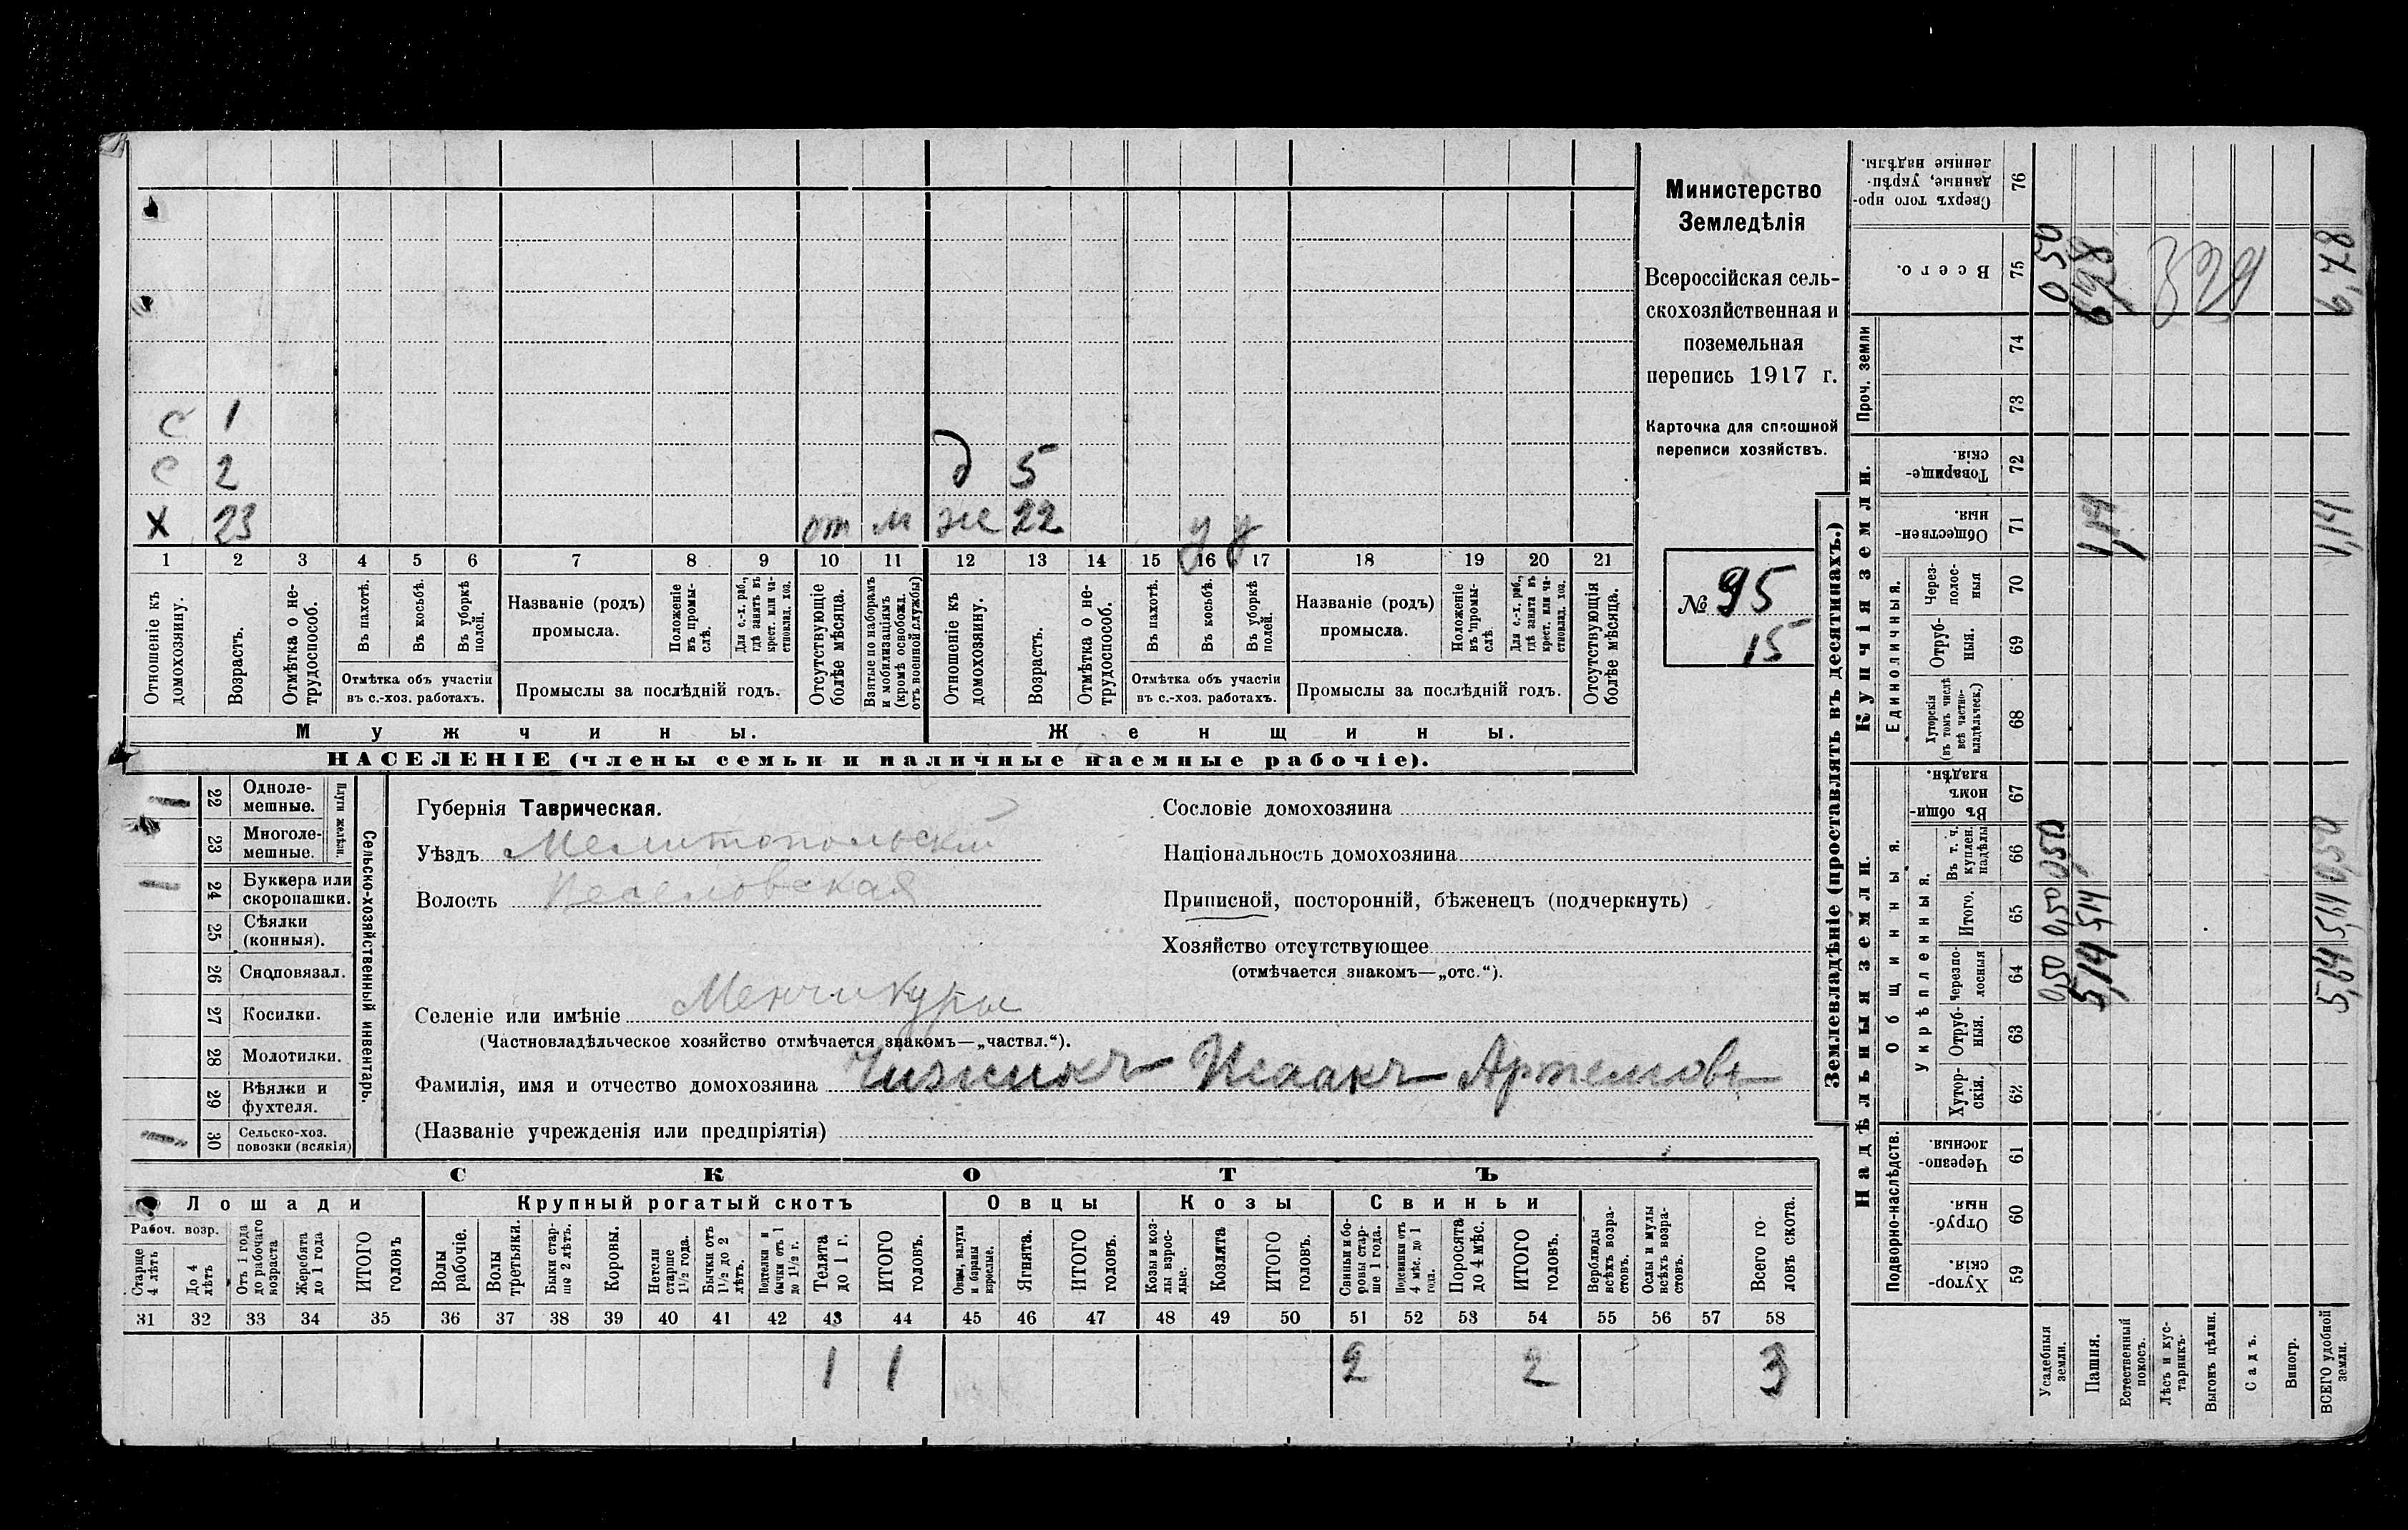 с 1
с 2 д 5
х 23 от м же 22 у у
1 2 3 4 5 6 7 8 9 10 11 12 13 14 15 16 17 18 19 20 21
Отношеніе къ домохозяину.
Возрастъ.
Отмѣтка о нетрудоспособ.
Въ пахотѣ.
Въ косьбѣ.
Въ уборкѣ полей.
Отмѣтка объ участіи
въ с.-хоз. работахъ.
Названіе (родъ)
промысла.
Положеніе въ промыслѣ.
Для с.-х. раб., гдѣ занятъ въ крест. или частновлад. хоз.
Промыслы за послѣдній годъ.
Отсутствующіе болѣе мѣсяца.
Взятые по наборамъ и мобилизаціямъ (кромѣ освобожд. отъ военной службы)
Отношеніе къ домохозяину.
Возрастъ.
Отмѣтка о нетрудоспособ.
Въ пахотѣ.
Въ косьбѣ.
Въ уборкѣ полей.
Отмѣтка объ участіи
въ с.-хоз. работахъ.
Названіе (родъ)
промысла.
Положеніе въ промыслѣ.
Для с.-х. раб., гдѣ занята въ крест. или частновлад. хоз.
Промыслы за послѣдній годъ.
Отсутствующія болѣе мѣсяца.
Мужчины.
Женщины.
НАСЕЛЕНІЕ (члены семьи и наличные наемные рабочіе).
Министерство
Земледѣлія
Всероссійская сель-
скохозяйственная и
поземельная
перепись 1917 г.
Карточка для сплошной
переписи хозяйствъ.
№ 95
15
22 Одноле-
мешные.
23 Многоле-
мешные.
Плуги желѣзн.
24 Буккера или
скоропашки.
25 Сѣялки
(конныя).
26 Сноповязал.
27 Косилки.
28 Молотилки.
29 Вѣялки и
фухтеля.
30 Сельско-хоз.
повозки (всякія)
Сельско-хозяйственный инвентарь.
Губернія Таврическая.
Уѣздъ Мелитопольскій
Волость Веселовская
Сословіе домохозяина
Національность домохозяина
Приписной, посторонній, бѣженецъ (подчеркнуть)
Хозяйство отсутствующее
(отмѣчается знакомъ—„отс.“).
Селеніе или имѣніе Менчикуры
(Частновладѣльческое хозяйство отмѣчается знакомъ—„частвл.“).
Фамилія, имя и отчество домохозяина Чижикъ Исаакъ Артемовъ
(Названіе учрежденія или предпріятія)
СКОТЪ
Лошади
Крупный рогатый скотъ
Овцы
Козы
Свиньи
Рабоч. возр.
Старше 4 лѣтъ
До 4 лѣтъ
Отъ 1 года до рабочаго возраста
Жеребята до 1 года
ИТОГО головъ
Волы рабочіе.
Волы третьяки.
Быки старше 2 лѣтъ.
Коровы.
Нетели старше 1½ года.
Бычки отъ 1½ до 2 лѣтъ.
Подтелки и бычки отъ 1 до 1½ г.
Телята до 1 г.
ИТОГО головъ.
Овцы, валухи и бараны взрослые.
Ягнята.
ИТОГО головъ.
Козы и козлы взрослые.
Козлята
ИТОГО головъ.
Свиньи и боровы старше 1 года.
Подсвинки отъ 4 мѣс. до 1 года.
Поросята до 4 мѣс.
ИТОГО головъ.
Верблюды всѣхъ возрастовъ.
Ослы и мулы всѣхъ возрастовъ.
Всего головъ скота.
31 32 33 34 35 36 37 38 39 40 41 42 43 44 45 46 47 48 49 50 51 52 53 54 55 56 57 58
1 1 2 2 3
Землевладѣніе (проставлять въ десятинахъ.)
Надѣльныя земли.
Купчія земли.
Проч. земли
Подворно-наслѣдств.
Общинныя.
Укрѣпленныя.
Единоличныя.
Хуторскія. 59
Отрубныя. 60
Черезполосныя. 61
Хуторскія. 62
Отрубныя. 63
Черезполосныя 64
Итого. 65
Въ т. ч. куплен. надѣлы 66
Въ общинномъ владѣн. 67
Хуторскія (въ томъ числѣ всѣ частновладѣльческ.) 68
Отрубныя. 69
Черезполосныя 70
Общественныя. 71
Товарищескія. 72
73
74
Всего. 75
Сверхъ того проданные, укрѣпленные надѣлы. 76
Усадебныя земли. 0,50 0,50 0,50 0 50
Пашня. 5,14 5,14 1,14
Естественный покосъ.
Лѣсъ и кустарникъ.
Выгонъ цѣлин.
Садъ.
Виногр.
ВСЕГО удобной земли. 5,64 5,64 0,50 1,14 6,78